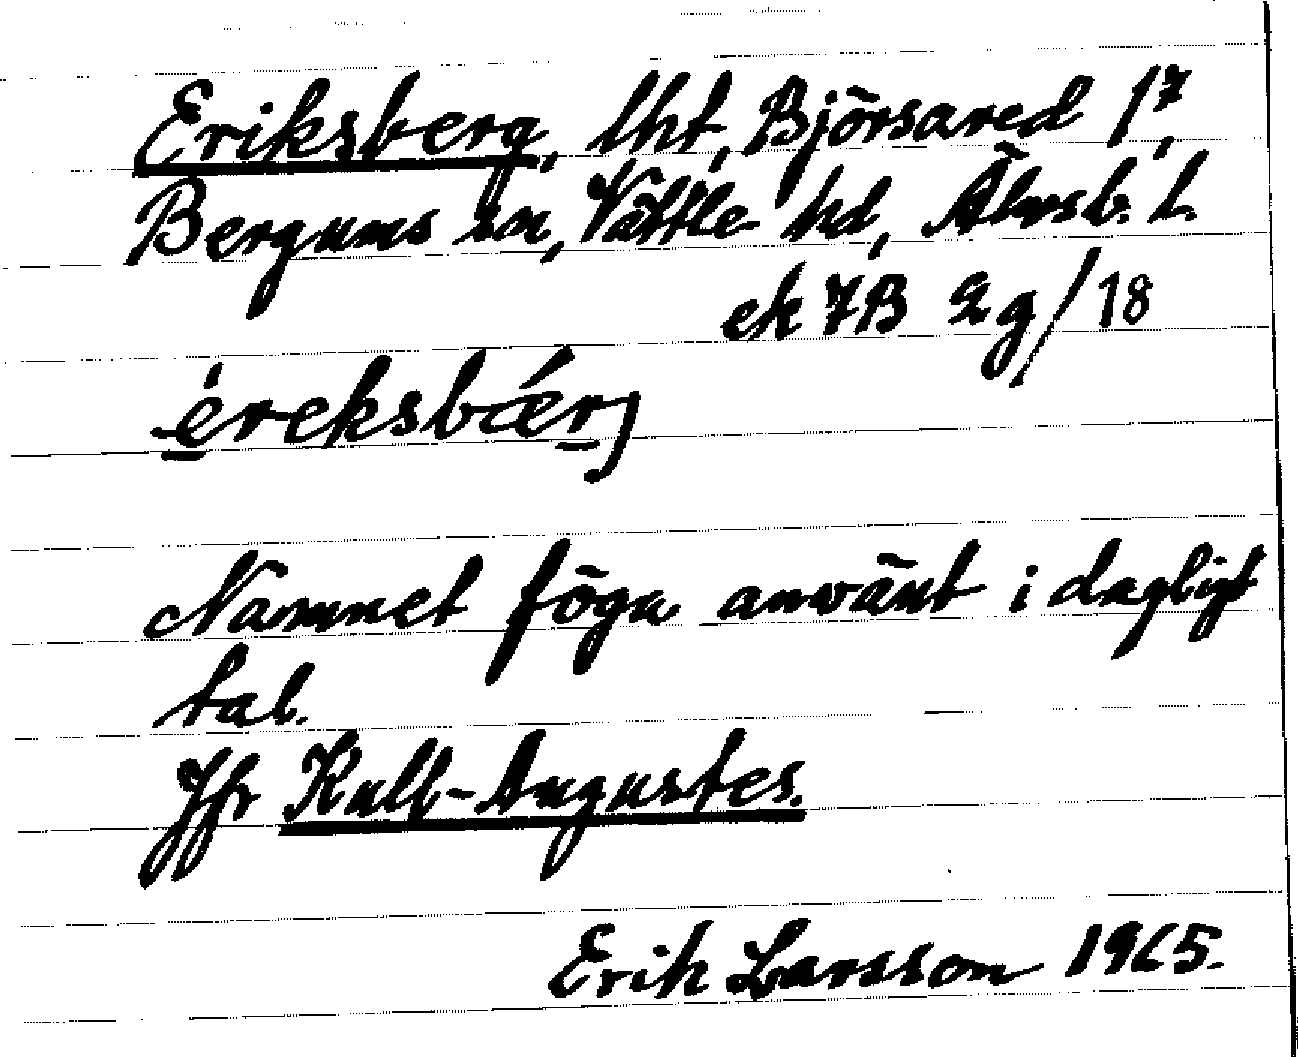 Eriksberg, lht, Björsared 1⁷,
Bergums sn, Vättle hd, Älvsb. l.
ek 7B 2g/18
èreksbǽrj
Namnet föga använt i dagligt
tal.
Jfr Kull-Augustes.
Erik Larsson 1965.